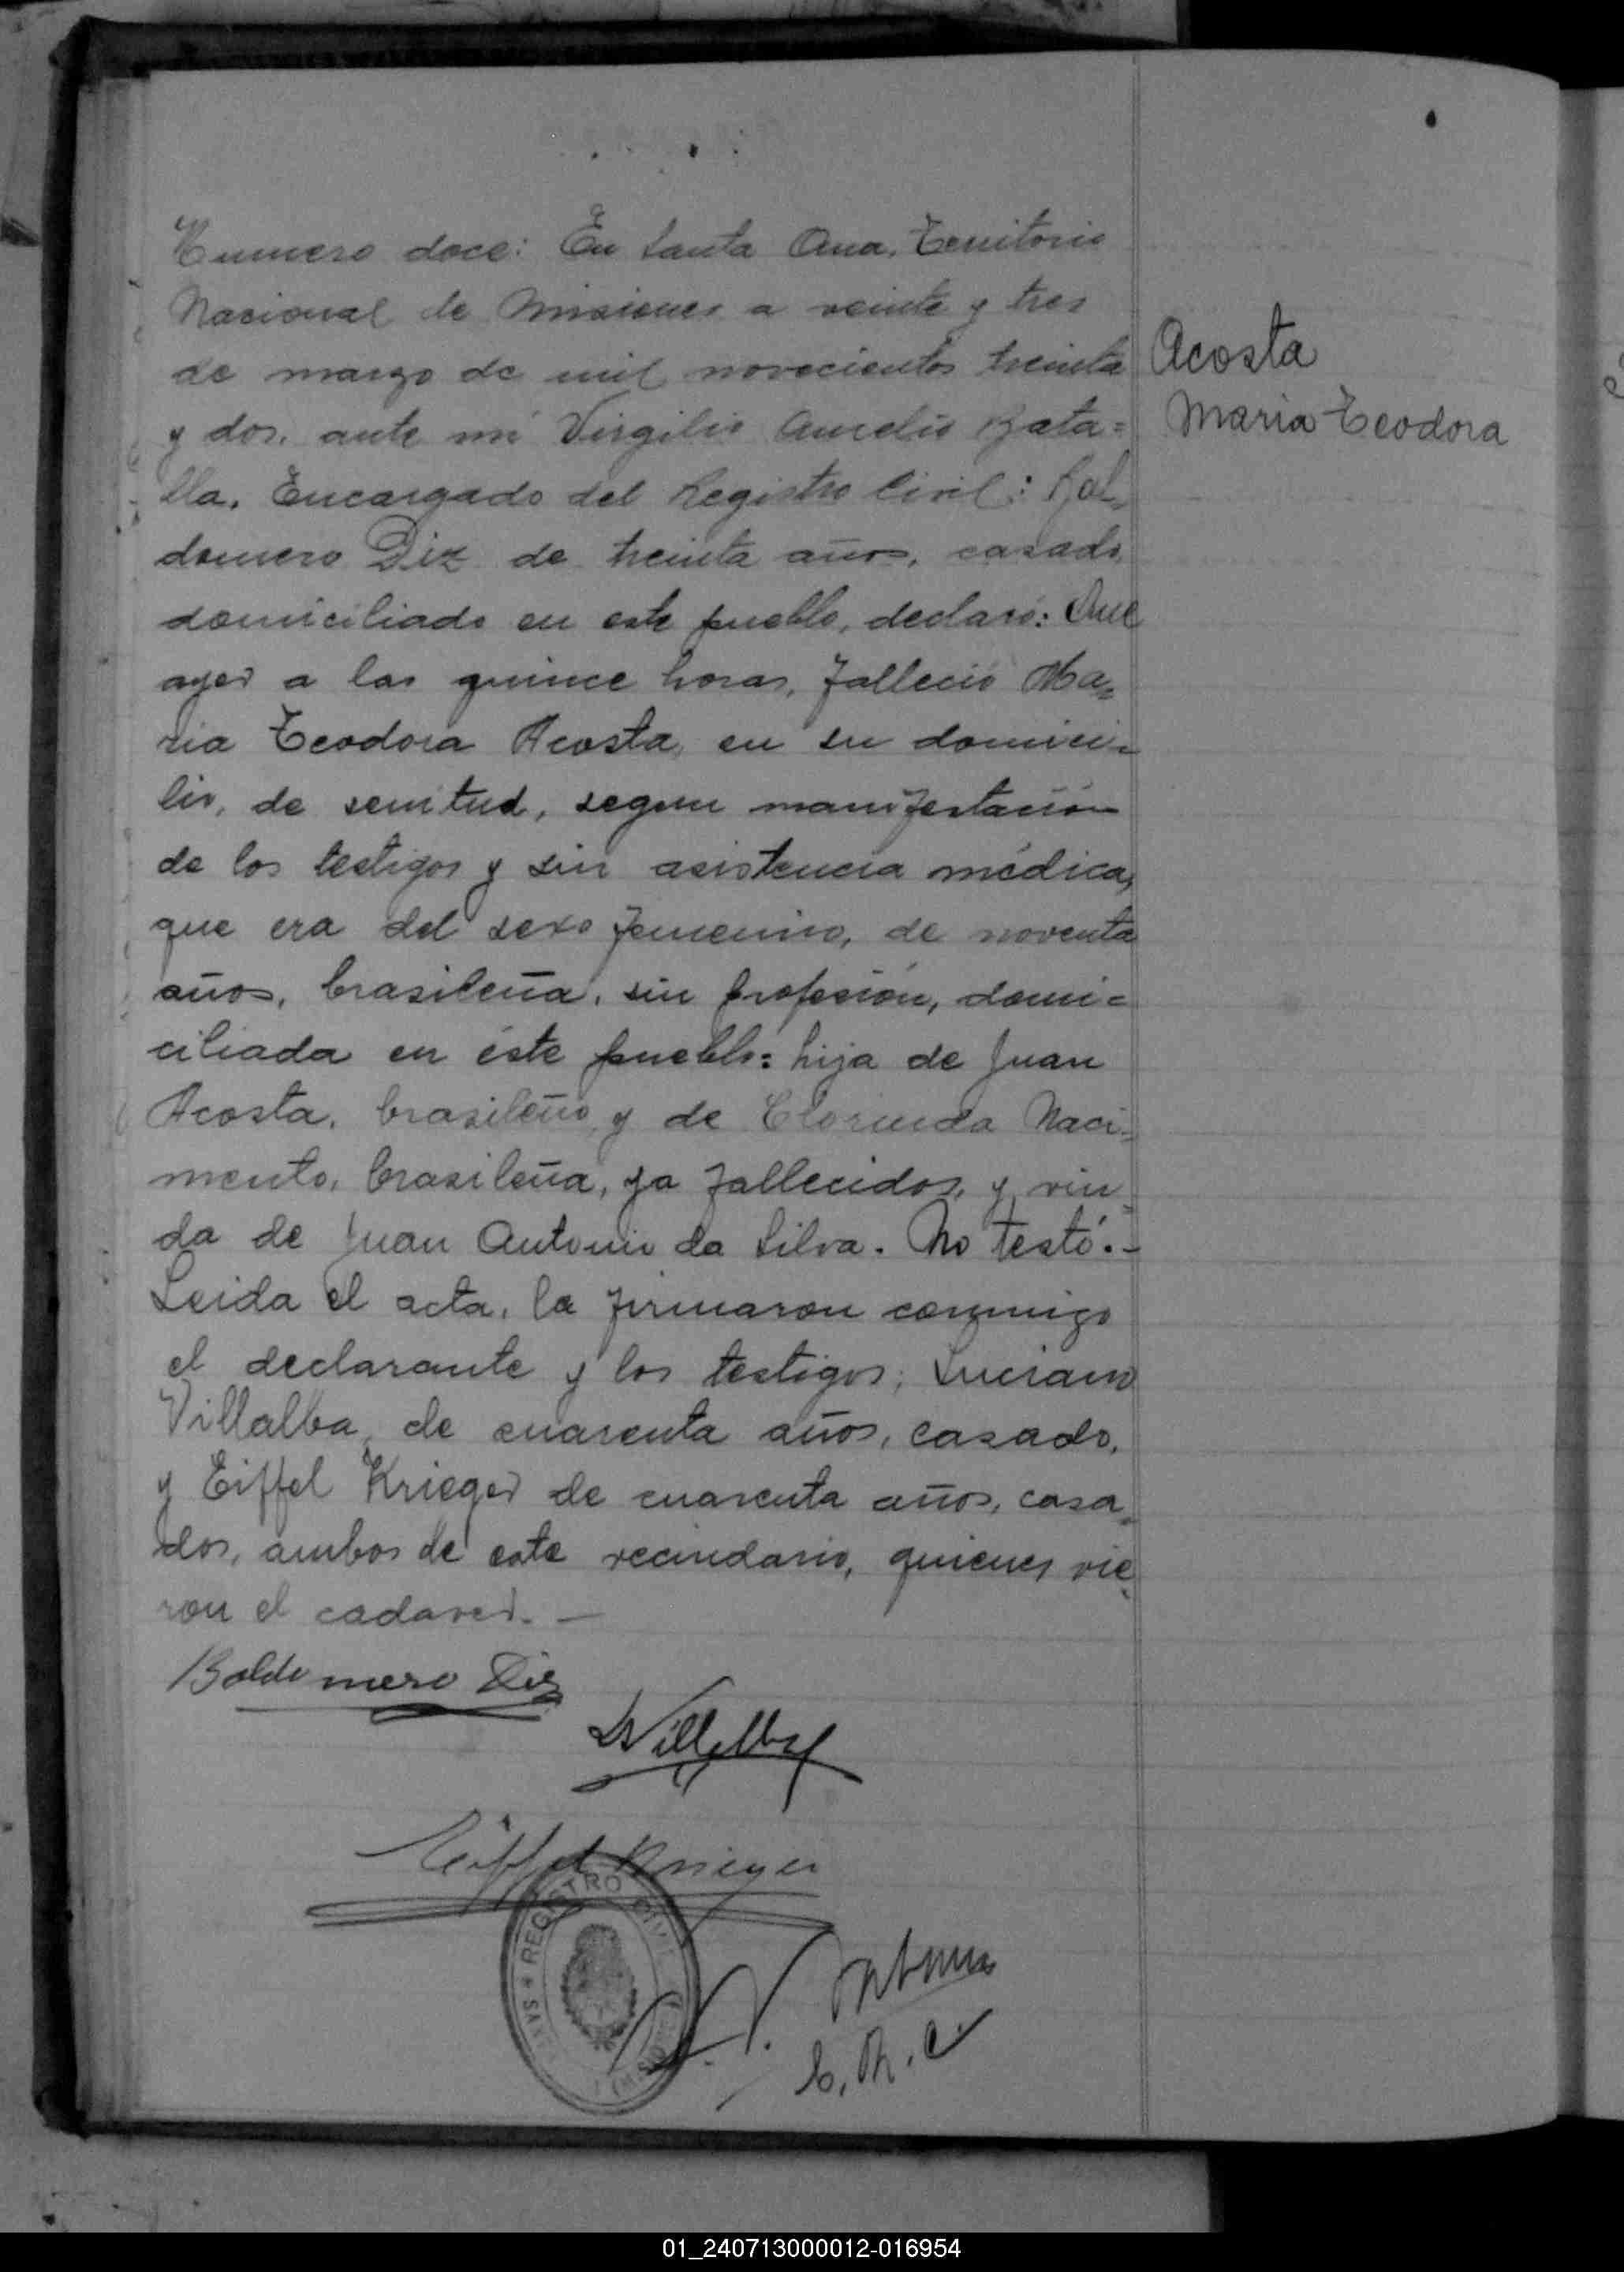 Numero doce: En Santa Ana, Territorio
Nacional de Misiones a veinte y tres
de marzo de mil novecientos treinta
y dos, ante mi Virgilio Aurelio Bata=
lla, Encargado del Registro Civil: Bal=
domero Diz de treinta años, casado,
domiciliado en este pueblo, declaró: Que
ayer a las quince horas, falleció Ma=
ria Teodora Acosta, en su domici=
lio, de senitud, segun manifestación
de los testigos y sin asistencia médica,
que era del sexo femenino, de noventa
años, brasileña, sin profesión, domi=
ciliada en éste pueblo: hija de Juan
Acosta, brasileño, y de Clorinda Naci=
mento, brasileña, ya fallecidos, y viu=
da de Juan Antonio da Silva. No testó.-
Leida el acta, la firmaron conmigo
el declarante y los testigos; Luciano
Villalba, de cuarenta años, casado,
y Eiffel Krieger de cuarenta años, casa=
dos, ambos de este vecindario, quienes vie=
ron el cadaver. —
Acosta
Maria Teodora
Baldomero Diz
LVillalba
Eiffel Krieger
SANTA * REGISTRO CIVIL
(MISIONES)
E. R. C.
01_240713000012-016954